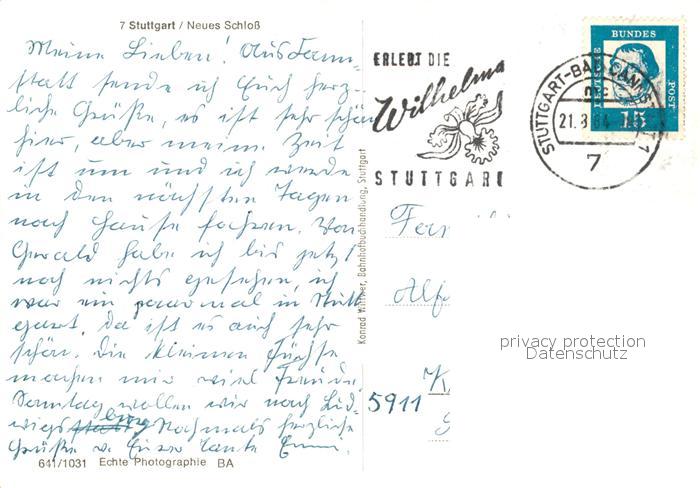 7 Stuttgart / Neues Schloß
Meine Lieben! Aus Cann-
statt sende ich Euch herz-
liche Grüße, es ist sehr schön
hier, aber meine Zeit
ist um und ich werde
in den nächsten Tagen
nach Hause fahren. Von
Gerald habe ich bis jetzt
noch nichts gesehen, ich
war ein paarmal in Stutt
gart, da ist es auch sehr
schön. Die kleinen Füchse
machen mir viel Freude,
Sonntag wollen wir nach Lud-
wigsburg Nochmals herzliche
Grüße v. Eurer Tante Emmi.
641/1031 Echte Photographie BA
Konrad Wittwer, Bahnhofbuchhandlung, Stuttgart
ERLEBT DIE
Wilhelma
STUTTGART
STUTTGART-BAD CANNSTATT 1
21.8.64
7
DEUTSCHE
BUNDES
POST
15
Fam
Alf
5911 K
privacy protection
Datenschutz